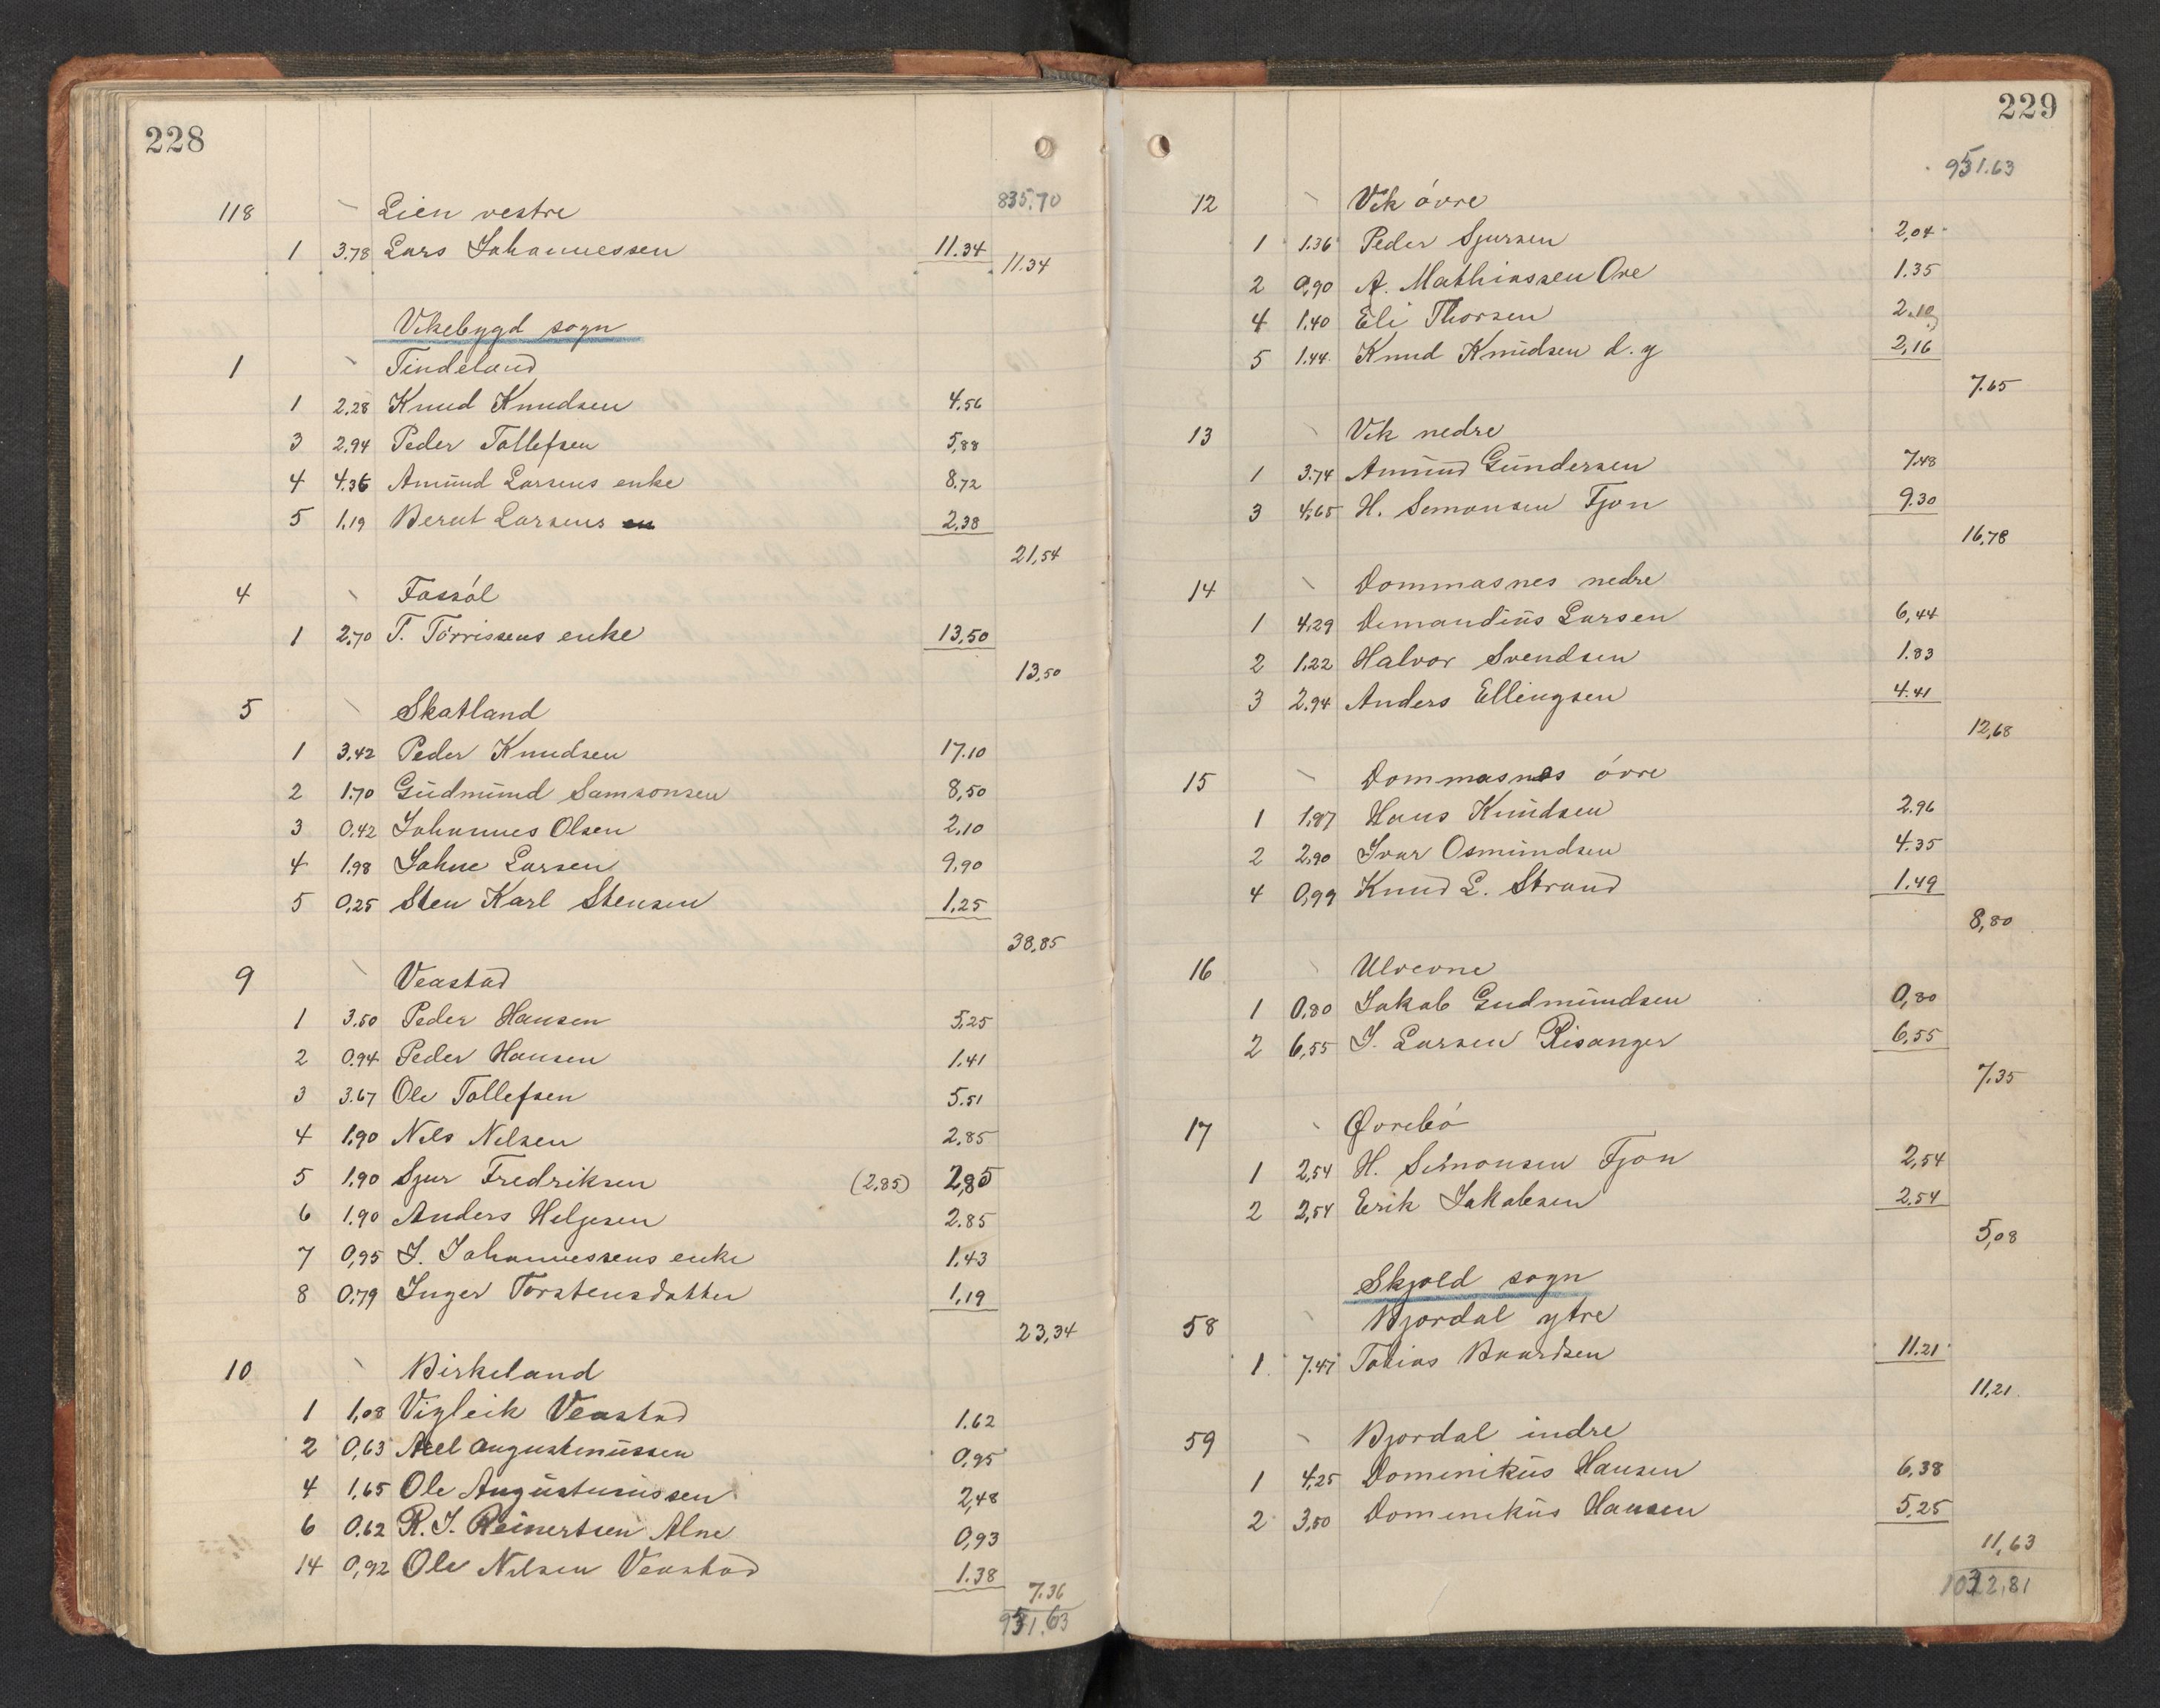 228
835.70
118 Lien vestre
1 3.78 Lars Johannessen 11.34
11.34
Vikebygd sogn
1 Tindeland
1 2.28 Knud Knudsen 4.56
3 2.94 Peder Tollefsen 5,88
4 4.36 Amund Larsens enke 8.72
5 1.19 Berut Larsens 2,38
21,54
4 Fossól
1 2.70 T. Tórrissens enke 13,50
13,50
5 Skatland
1 3.42 Peder Knudsen 17.10
2 1.70 Gudmund Samsonsen 8,50
3 0.42 Johannes Olsen 2,10
4 1.98 Johne Larsen 9,90
5 0,25 Sten Karl Stensen 1.25
38,85
9 Veastad
1 3.50 Peder Hansen 5,25
2 0.94 Peder Hansen 1.41
3 3.67 Ole Tollefsen 5.51
4 1.90 Nils Nilsen 2.85
5 1.90 Sjur Fredriksen (2.85) 2,85
6 1.90 Anders Helgesen 2.85
7 0,95 J. Johannessens enke 1.43
8 0.79 Inger Torstensdatter 1,19
23,34
10 Birkeland
1 1,08 Vigleik Veastad 1.62
2 0,63 Axel Augustinussen 0,95
4 1,65 Ole Augustinussen 2,48
6 0.62 R. J. Reinertsen Alne 0,93
14 0,92 Ole Nilsen Veastad 1.38
7.36
951.63
229
951.63
12 Vik óvre
1 1.36 Peder Sjursen 2,04
2 0,90 A. Mathiassen Ore 1.35
4 1.40 Eli Thorsen 2.10
5 1.44 Knud Knudsen d.y 2,16
7.65
13 Vik nedre
1 3.74 Amund Gundersen 7.48
3 4,65 H. Simonsen Fjon 9.30
16,78
14 Dommasnes nedre
1 4,29 Dimandius Larsen 6,44
2 1,22 Halvor Svendsen 1.83
3 2.94 Anders Ellingsen 4.41
12,68
15 Dommasnes óvre
1 1,97 Hans Knudsen 2.96
2 2,90 Ivar Osmundsen 4.35
4 0,99 Knud L. Strand 1.49
8,80
16 Ulvevne
1 0,80 Jakob Gudmundsen 0,80
2 6,55 J. Larsen Risanger 6,55
7.35
17 Øvrebó
1 2,54 H. Simonsen Fjon 2,54
2 2,54 Erik Jakobsen 2,54
5,08
Skjold sogn
58 Bjordal ytre
1 7.47 Tobias Baardsen 11.21
11,21
59 Bjordal indre
1 4,25 Domenikus Hansen 6,38
2 3,50 Domenikus Hansen 5,25
11,63
1032,81